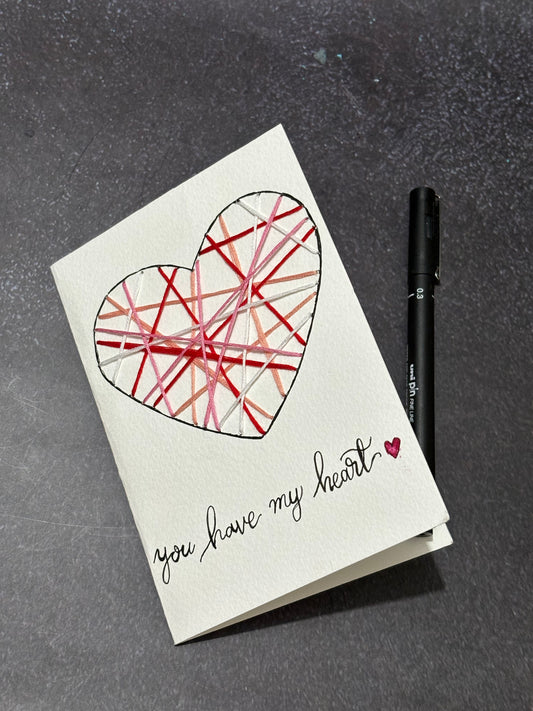 you have my heart
0.3
uni pin FINE LINE